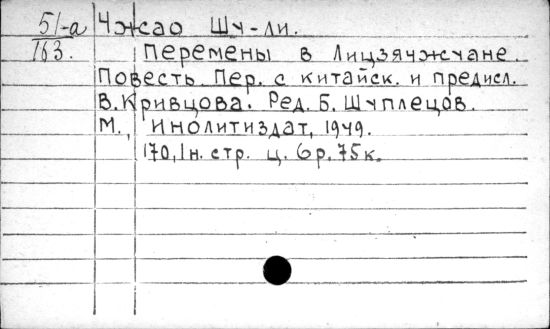 51-а Чжао Шу-ли.
163. Перемены в Лицзячжуане.
Повесть. Пер. с китайск. и предисл.
В. Кривцова. Ред. Б. Шуплецов.
М., Инолитиздат, 1949.
170,1н. стр. ц. 6р. 75к.